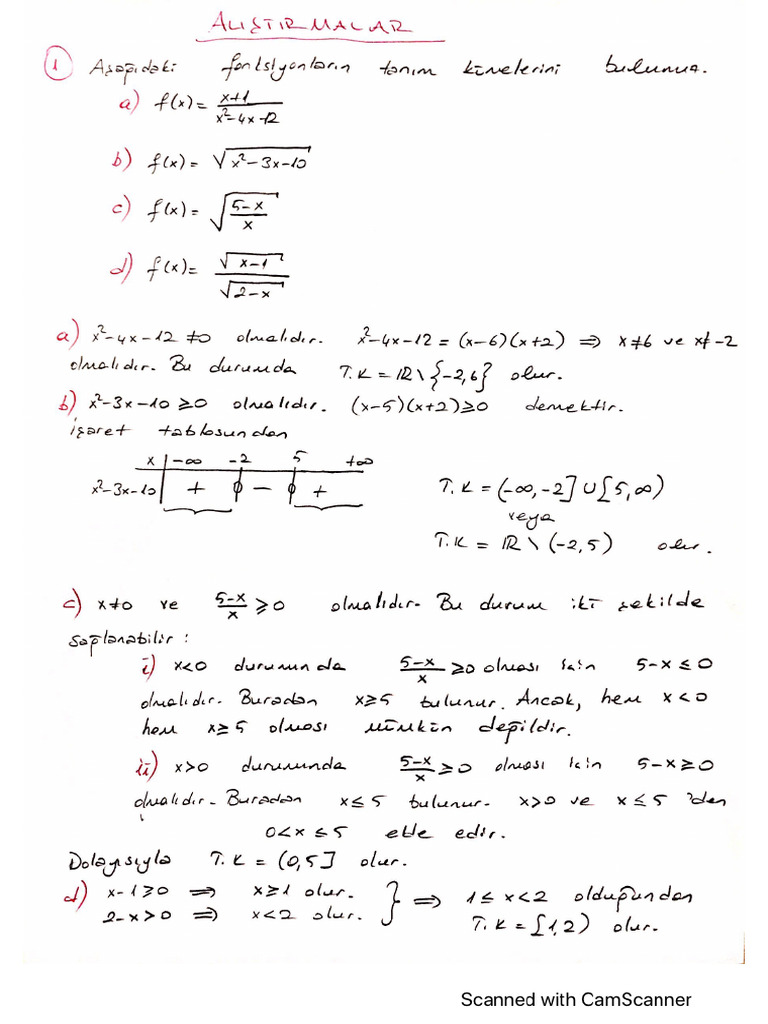 ALIŞTIRMALAR
1 Aşağıdaki fonksiyonların tanım kümelerini bulunuz.
a) f(x) = (x+1)/(x²-4x-12)
b) f(x) = √(x²-3x-10)
c) f(x) = √((5-x)/x)
d) f(x) = √(x-1)/√(2-x)
a) x²-4x-12 ≠0 olmalıdır. x²-4x-12 = (x-6)(x+2) ⇒ x≠6 ve x≠-2
olmalıdır. Bu durumda T.K = ℝ\{-2,6} olur.
b) x²-3x-10 ≥0 olmalıdır. (x-5)(x+2)≥0 demektir.
işaret tablosundan
x | -∞ -2 5 +∞
x²-3x-10 | + ϕ - ϕ +
T.K = (-∞,-2]∪[5,∞)
veya
T.K = ℝ\(-2,5) olur.
c) x≠0 ve (5-x)/x ≥0 olmalıdır. Bu durum iki şekilde
sağlanabilir :
i) x<0 durumunda (5-x)/x ≥0 olması için 5-x≤0
olmalıdır. Buradan x≥5 bulunur. Ancak, hem x<0
hem x≥5 olması mümkün değildir.
ii) x>0 durumunda (5-x)/x ≥0 olması için 5-x≥0
olmalıdır. Buradan x≤5 bulunur. x>0 ve x≤5 'den
0<x≤5 elde edilir.
Dolayısıyla T.K = (0,5] olur.
d) x-1≥0 ⇒ x≥1 olur.
2-x>0 ⇒ x<2 olur. } ⇒ 1≤x<2 olduğundan
T.K = [1,2) olur.
Scanned with CamScanner